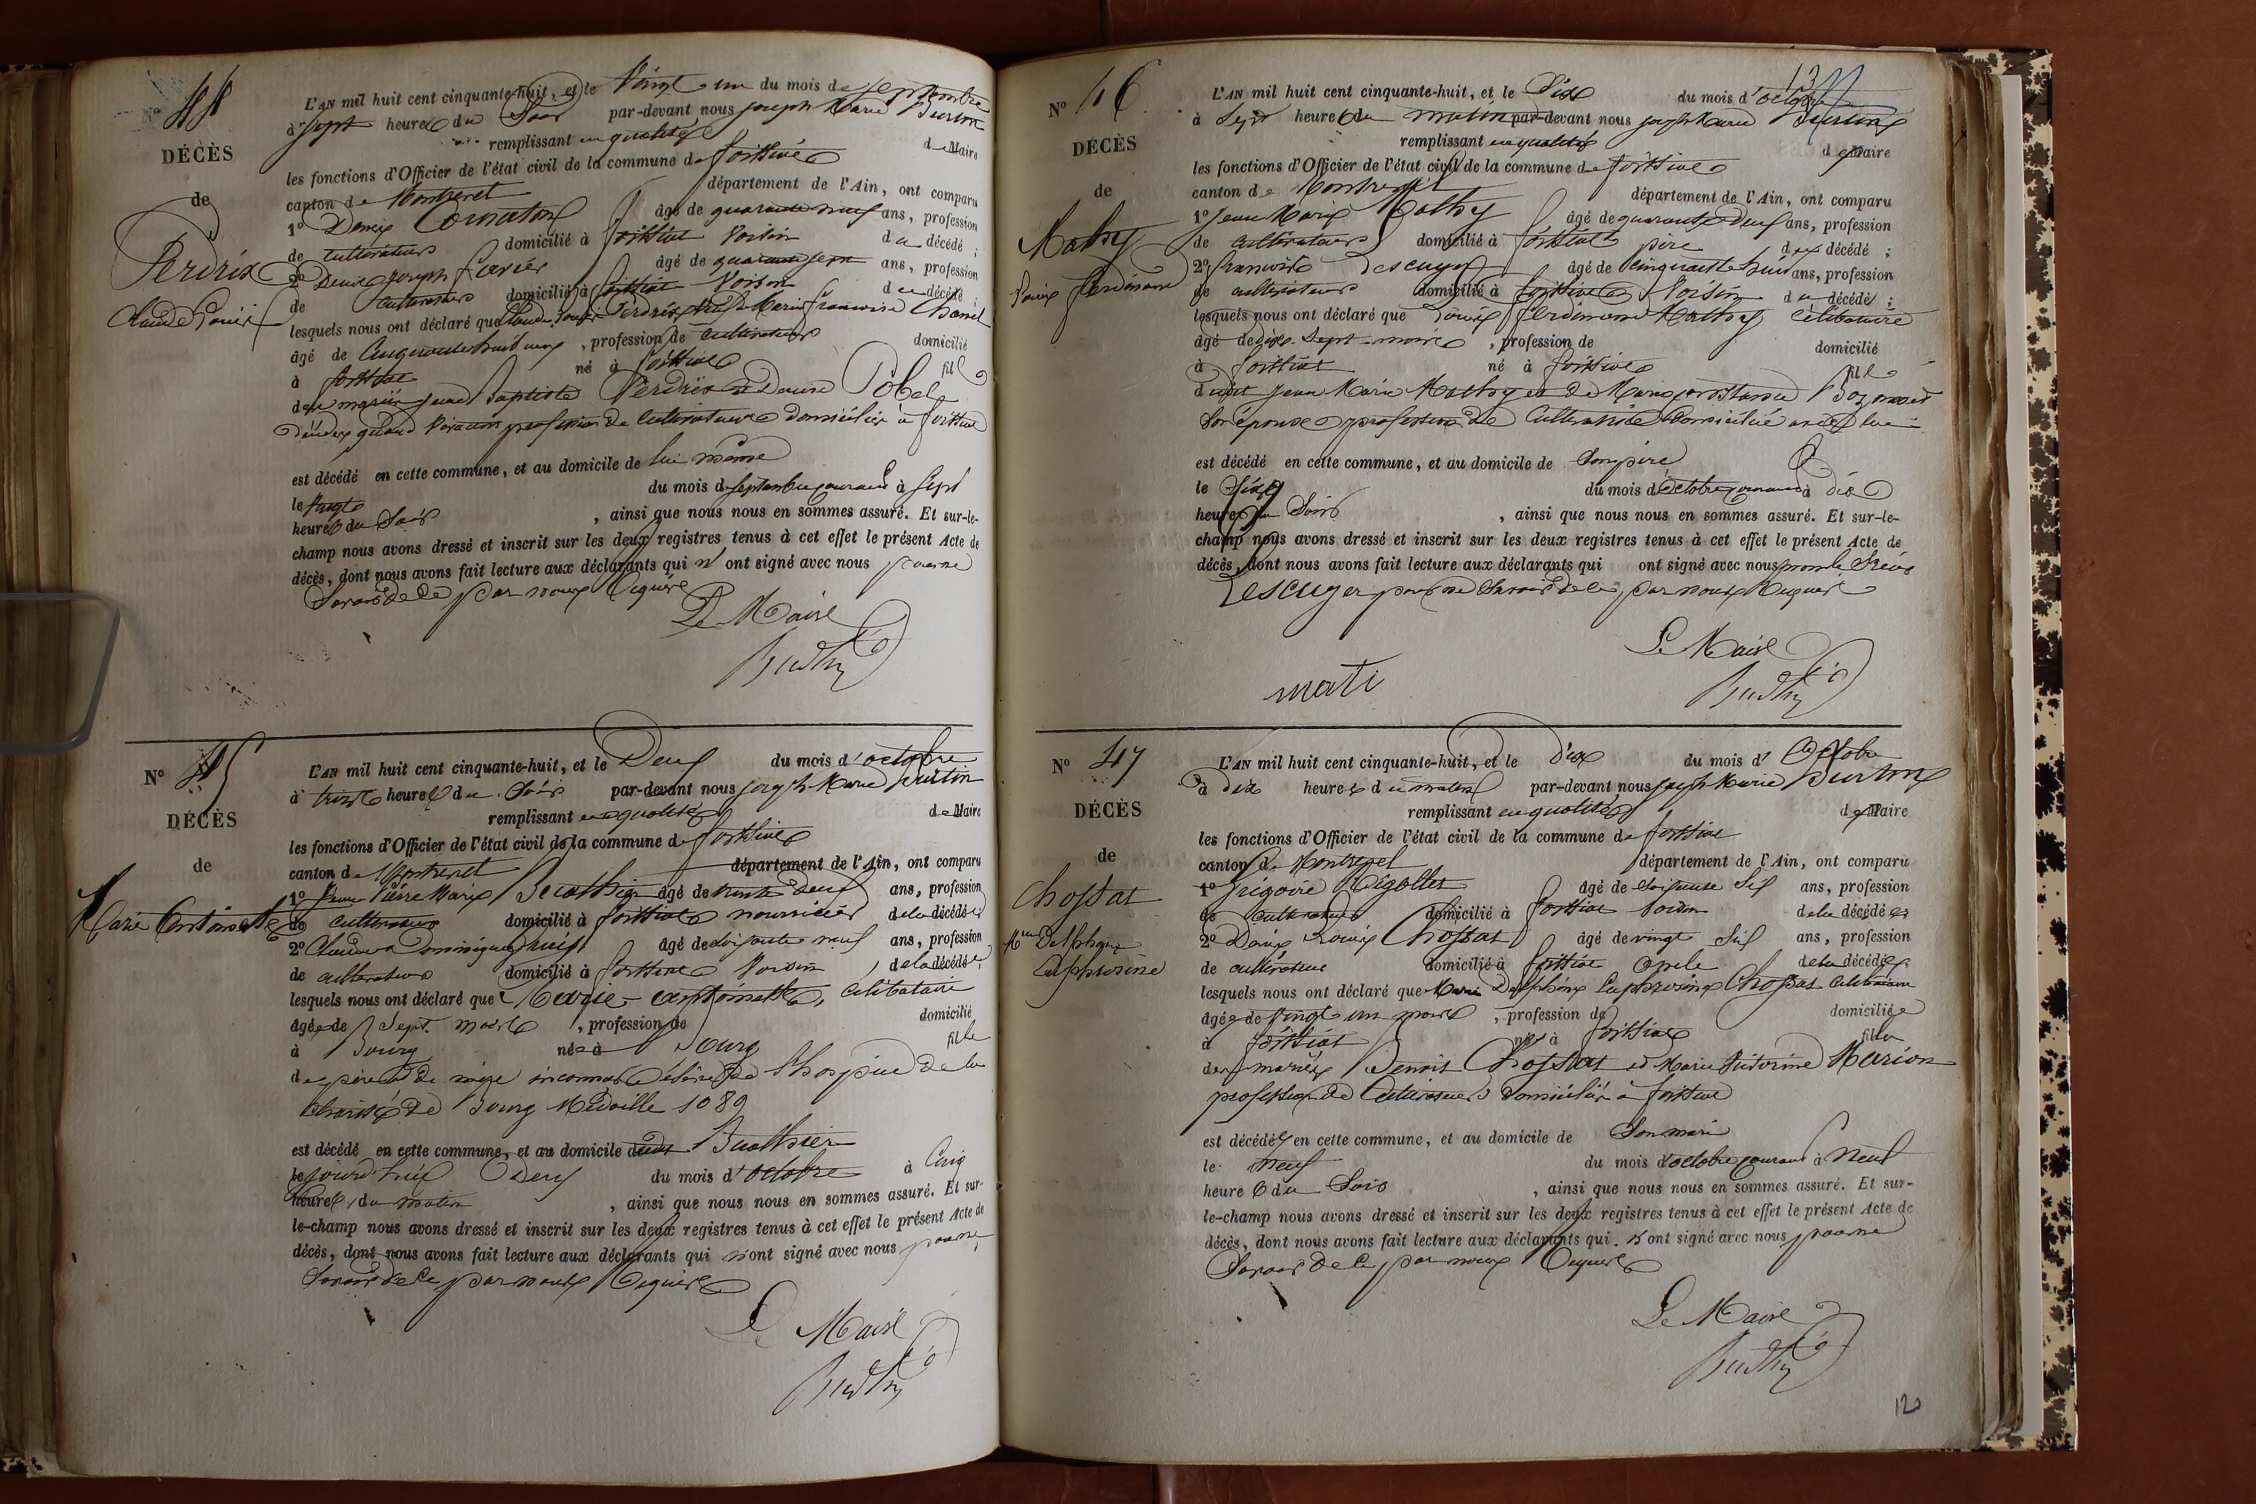 Nº 44
DÉCÈS
de
Perdrix
Claude Louis
L'AN mil huit cent cinquante-huit, et le Vingt un du mois de septembre
à sept heures du Soir par-devant nous joseph Marie Buston
remplissant en qualité de Maire
les fonctions d'Officier de l'état civil de la commune de
canton de Montrevel département de l'Ain, ont comparu
1º Denis âgé de quarante neuf ans, profession
de cultivateur domicilié à voisin du décédé ;
2º Denis joseph âgé de quarante sept ans, profession
de cultivateur domicilié à voisin du décédé ;
lesquels nous ont déclaré que Claude Louis Perdrix Marie françoise
âgé de Cinquante huit ans, profession de cultivateur domicilié
à né à fils
des mariés jean Baptiste Perdrix et Denise Pobel
profession de cultivateurs domiciliés à
est décédé en cette commune, et au domicile de lui même
le vingt du mois de septembre courant à sept
heures du Soir, ainsi que nous nous en sommes assuré. Et sur-le-
champ nous avons dressé et inscrit sur les deux registres tenus à cet effet le présent Acte de
décès, dont nous avons fait lecture aux déclarants qui n'ont signé avec nous pour ne
Savoir de ce par nous Requis
Le Maire
Nº 45
DÉCÈS
de
Marie Antoinette
L'AN mil huit cent cinquante-huit, et le Deux du mois d'octobre
à trois heures du Soir par-devant nous joseph Marie Buston
remplissant en qualité de Maire
les fonctions d'Officier de l'état civil de la commune de
canton de Montrevel département de l'Ain, ont comparu
1º Pierre Marie Buathier âgé de trente deux ans, profession
de cultivateur domicilié à nourricier de la décédée
2º Claude Dominique âgé de soixante neuf ans, profession
de cultivateur domicilié à Voisin de la décédée
lesquels nous ont déclaré que Marie antoinette, Celibataire
âgée de Sept mois, profession de domicilié
à Bourg née à Bourg fille
de père et de mère inconnus de l'hospice de la
charité de Bourg Médaille 1089
est décédé en cette commune, et au domicile dudit Buathier
le jourd'hui Deux du mois d'octobre à Cinq
heures du matin, ainsi que nous nous en sommes assuré. Et sur-
le-champ nous avons dressé et inscrit sur les deux registres tenus à cet effet le présent Acte de
décès, dont nous avons fait lecture aux déclarants qui n'ont signé avec nous pour ne
Savoir de ce par nous Requis
Le Maire
Nº 46
DÉCÈS
de
Mathy
Louis ferdinand
L'AN mil huit cent cinquante-huit, et le Dix du mois d'octobre
à Sept heures du matin par-devant nous joseph Marie Buston
remplissant en qualité de Maire
les fonctions d'Officier de l'état civil de la commune de
canton de Montrevel département de l'Ain, ont comparu
1º jean Marie Mathy âgé de quarante Deux ans, profession
de cultivateur domicilié à père du décédé ;
2º françois Lescuyer âgé de cinquante huit ans, profession
de cultivateur domicilié à Voisin du décédé ;
lesquels nous ont déclaré que Louis ferdinand Mathy célibataire
âgé de dix Sept mois, profession de domicilié
à né à fils
dudit jean Marie Mathy et de Marie Constance
Son épouse profession de Cultivatrice domiciliée avec lui
est décédé en cette commune, et au domicile de Son père
le du mois d'octobre courant à dix
heures du Soir, ainsi que nous nous en sommes assuré. Et sur-le-
champ nous avons dressé et inscrit sur les deux registres tenus à cet effet le présent Acte de
décès, dont nous avons fait lecture aux déclarants qui ont signé avec nous non le Sieur
Lescuyer pour ne Savoir de ce par nous Requis
Le Maire
mati
Nº 47
DÉCÈS
de
Chossat
Mie Delphine
Euphrosine
L'AN mil huit cent cinquante-huit, et le dix du mois d'Octobre
à dix heures du matin par-devant nous joseph Marie Buston
remplissant en qualité de Maire
les fonctions d'Officier de l'état civil de la commune de
canton de Montrevel département de l'Ain, ont comparu
1º Grégoire Rigollet âgé de soixante Six ans, profession
de cultivateur domicilié à Voisin de la décédée
2º Denis Louis Chossat âgé de vingt Six ans, profession
de cultivateur domicilié à Oncle de la décédée
lesquels nous ont déclaré que Marie Delphine Euphrosine Chossat Celibataire
âgée de Vingt un mois, profession de domiciliée
à née à fille
des mariés Benoit Chossat et Marie Victorine Marion
profession de Cultivateurs domiciliés à
est décédée en cette commune, et au domicile de
le neuf du mois d'octobre courant à Neuf
heures du Soir, ainsi que nous nous en sommes assuré. Et sur-
le-champ nous avons dressé et inscrit sur les deux registres tenus à cet effet le présent Acte de
décès, dont nous avons fait lecture aux déclarants qui n'ont signé avec nous pour ne
Savoir de ce par nous Requis
Le Maire
120